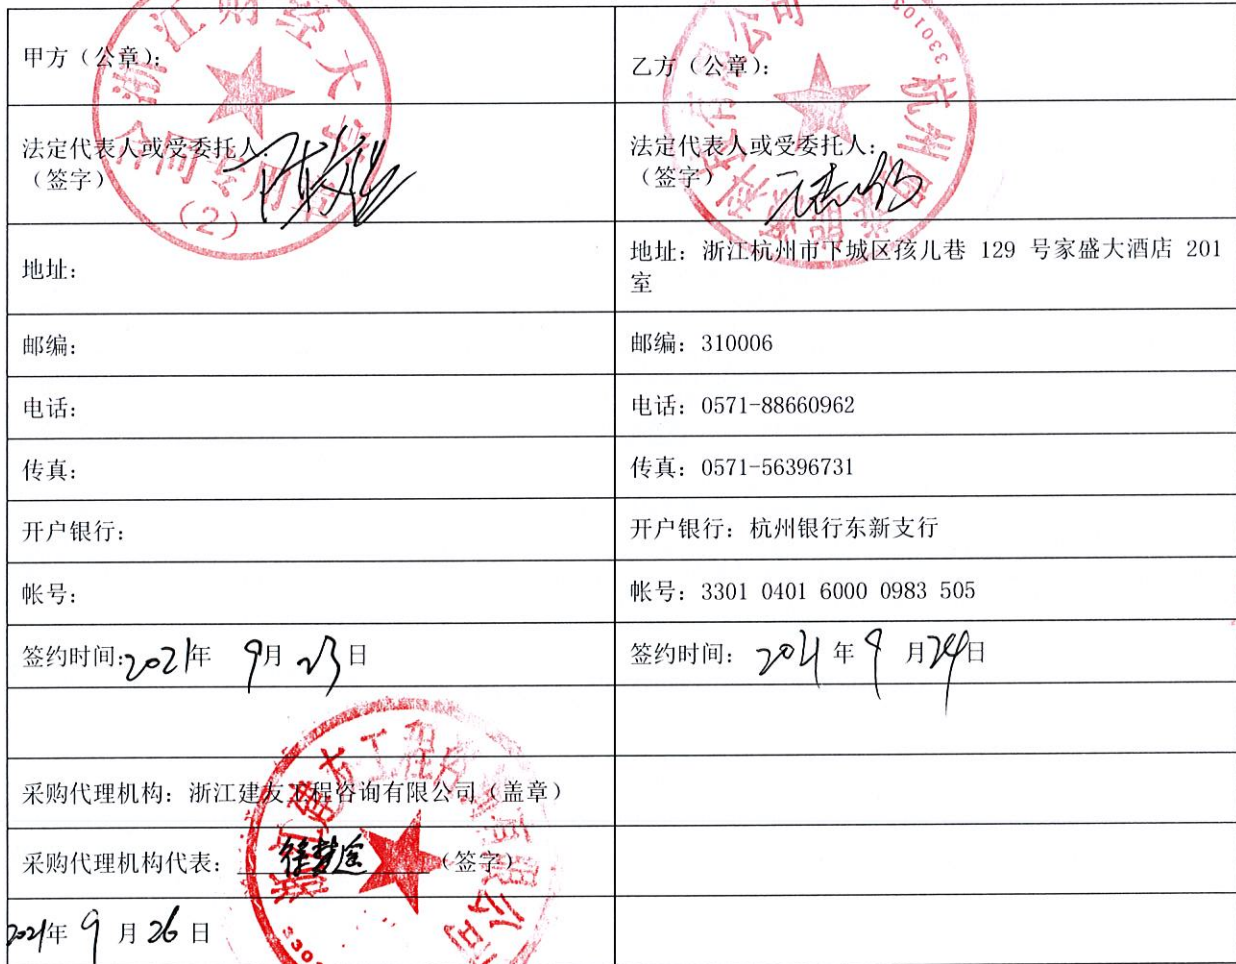 浙江财经大学
合同专用章
(2)
甲方（公章）：
乙方（公章）：
330103
法定代表人或受委托人：
（签字）
法定代表人或受委托人：
（签字）
地址：
地址：浙江杭州市下城区孩儿巷 129 号家盛大酒店 201
室
邮编：
邮编：310006
电话：
电话：0571-88660962
传真：
传真：0571-56396731
开户银行：
开户银行：杭州银行东新支行
帐号：
帐号：3301 0401 6000 0983 505
签约时间：2021年 9月 23日
签约时间：2021年 9 月 24日
采购代理机构：浙江建友工程咨询有限公司（盖章）
采购代理机构代表：徐梦途（签字）
2021年 9 月 26 日
浙江建友工程咨询有限公司